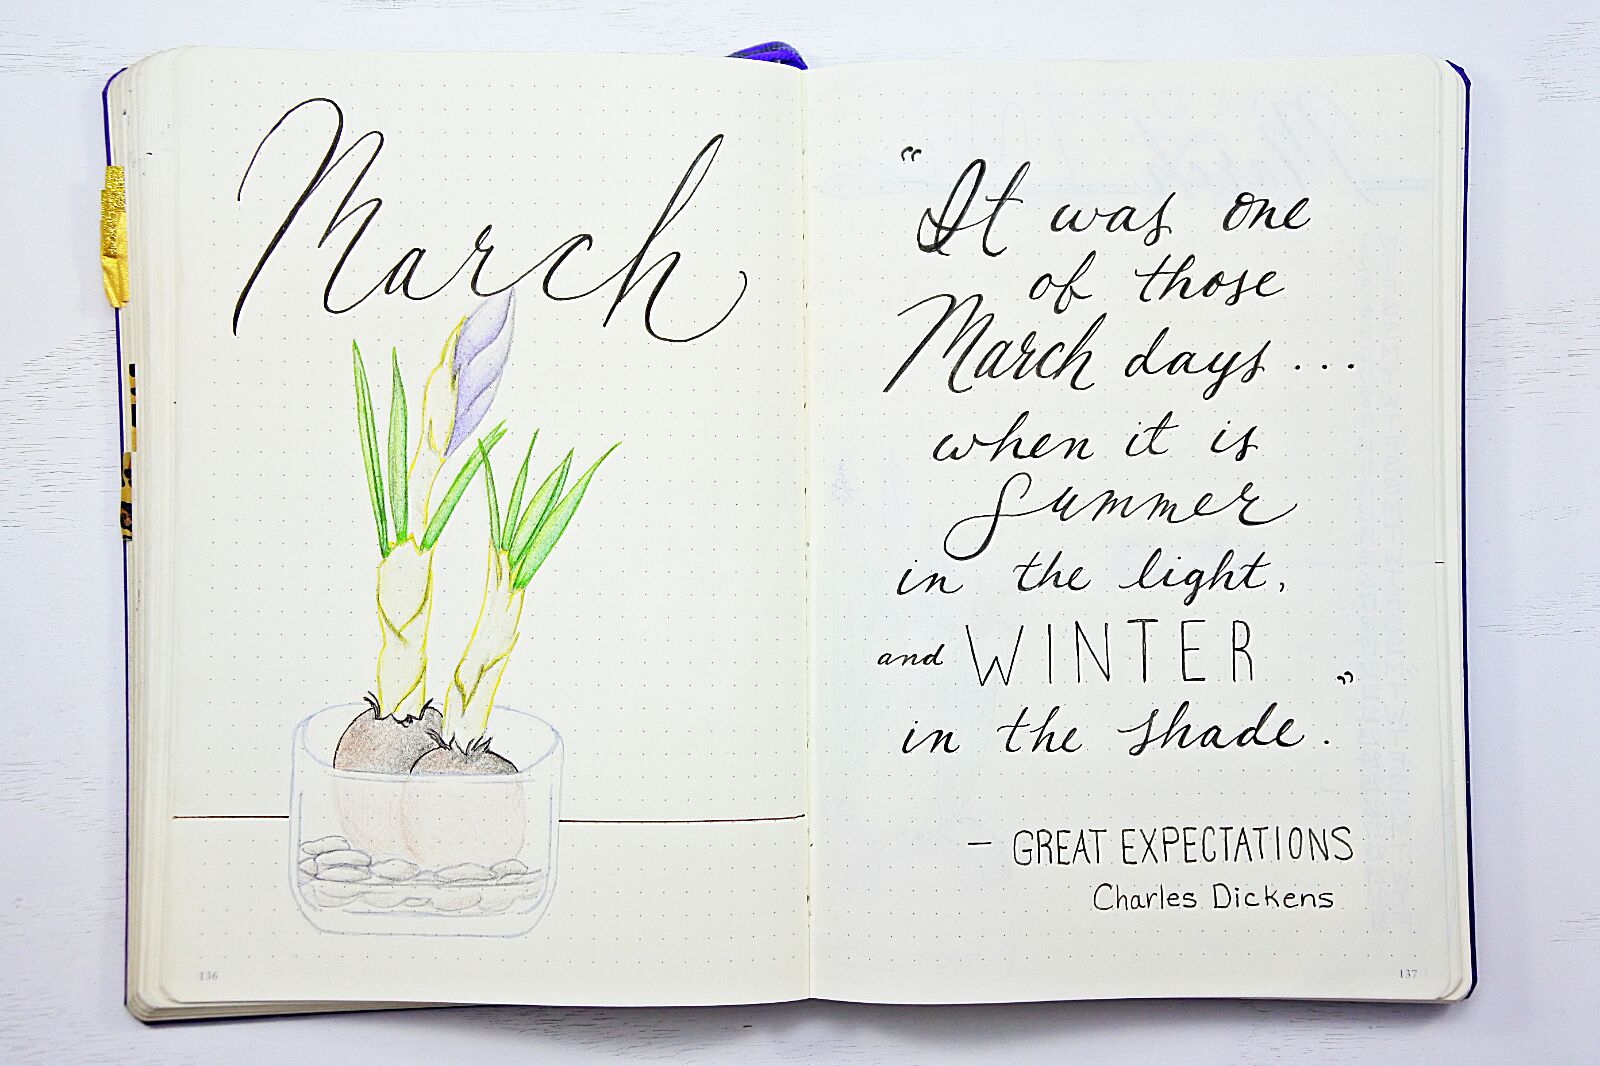 March
136
“It was one
of those
March days...
when it is
Summer
in the light,
and WINTER
in the shade.”
- GREAT EXPECTATIONS
Charles Dickens
137